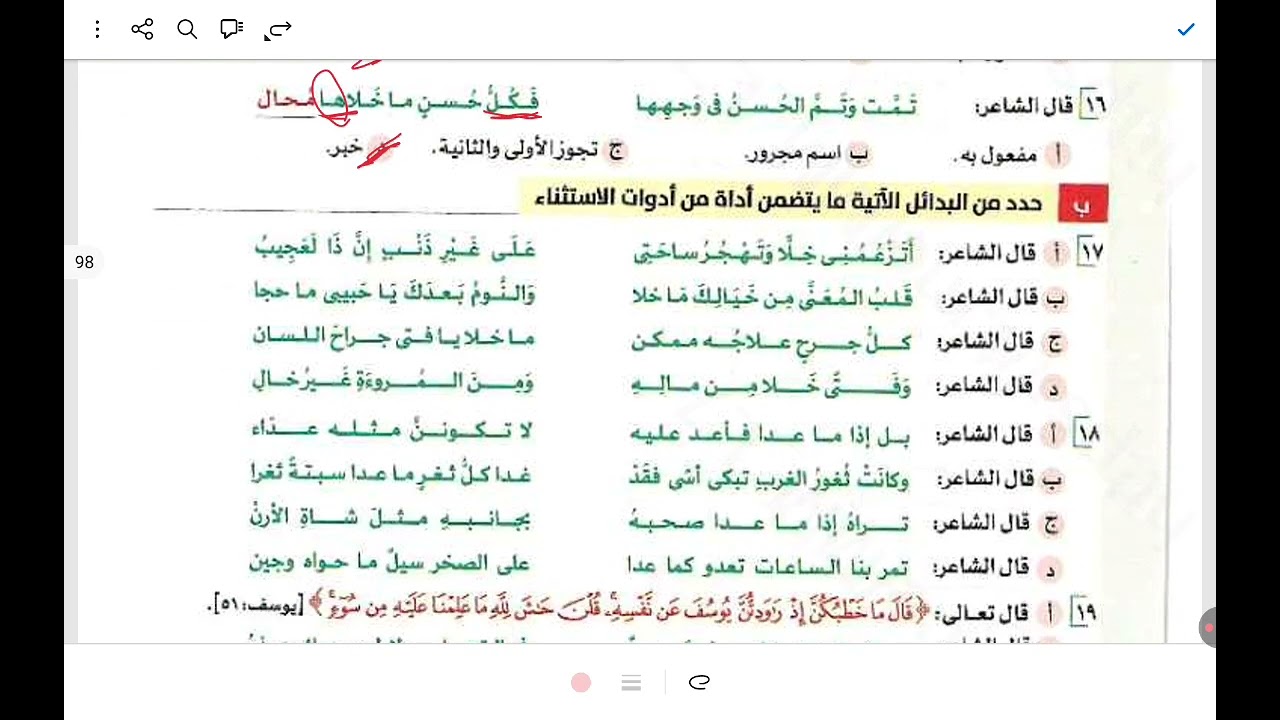 ١٦ قال الشاعر: تَمَّت وَتَمَّ الحُسنُ فى وَجهِها فَكُلُّ حُسنٍ ما خَلاها مُحال
أ مفعول به. ب اسم مجرور. ج تجوز الأولى والثانية. خبر.
ب حدد من البدائل الآتية ما يتضمن أداة من أدوات الاستثناء
١٧ أ قال الشاعر: أَتَزْعُمُنِى خِلًّا وَتَهْجُرُ ساحَتِى عَلَى غَيْرِ ذَنْبٍ إِنَّ ذَا لَعَجِيبُ
98
ب قال الشاعر: قَلبُ المُعَنَّى مِن خَيَالِكَ مَا خلا وَالنَّومُ بَعدَكَ يَا حَبيبى ما حجا
ج قال الشاعر: كلُّ جرحٍ علاجُه ممكن ما خلا يا فتى جراحَ اللسان
د قال الشاعر: وَفَتًى خَلا مِن مالِهِ وَمِنَ المُروءَةِ غَيرُ خالِ
١٨ أ قال الشاعر: بل إذا ما عدا فأعد عليه لا تكوننَّ مثله عذاء
ب قال الشاعر: وكانَتْ ثُغورُ الغربِ تبكى أسًى فقَدْ غدا كلُّ ثغرٍ ما عدا سبتةً ثغرا
ج قال الشاعر: تراهُ إذا ما عدا صحبهُ بجانبهِ مثلَ شاةِ الأرنْ
د قال الشاعر: تمر بنا الساعات تعدو كما عدا على الصخر سيلٌ ما حواه وجين
١٩ أ قال تعالى: ﴿قَالَ مَا خَطْبُكُنَّ إِذْ رَٰوَدتُّنَّ يُوسُفَ عَن نَّفْسِهِۦۚ قُلْنَ حَٰشَ لِلَّهِ مَا عَلِمْنَا عَلَيْهِ مِن سُوٓءٍۚ﴾ [يوسف: ٥١].